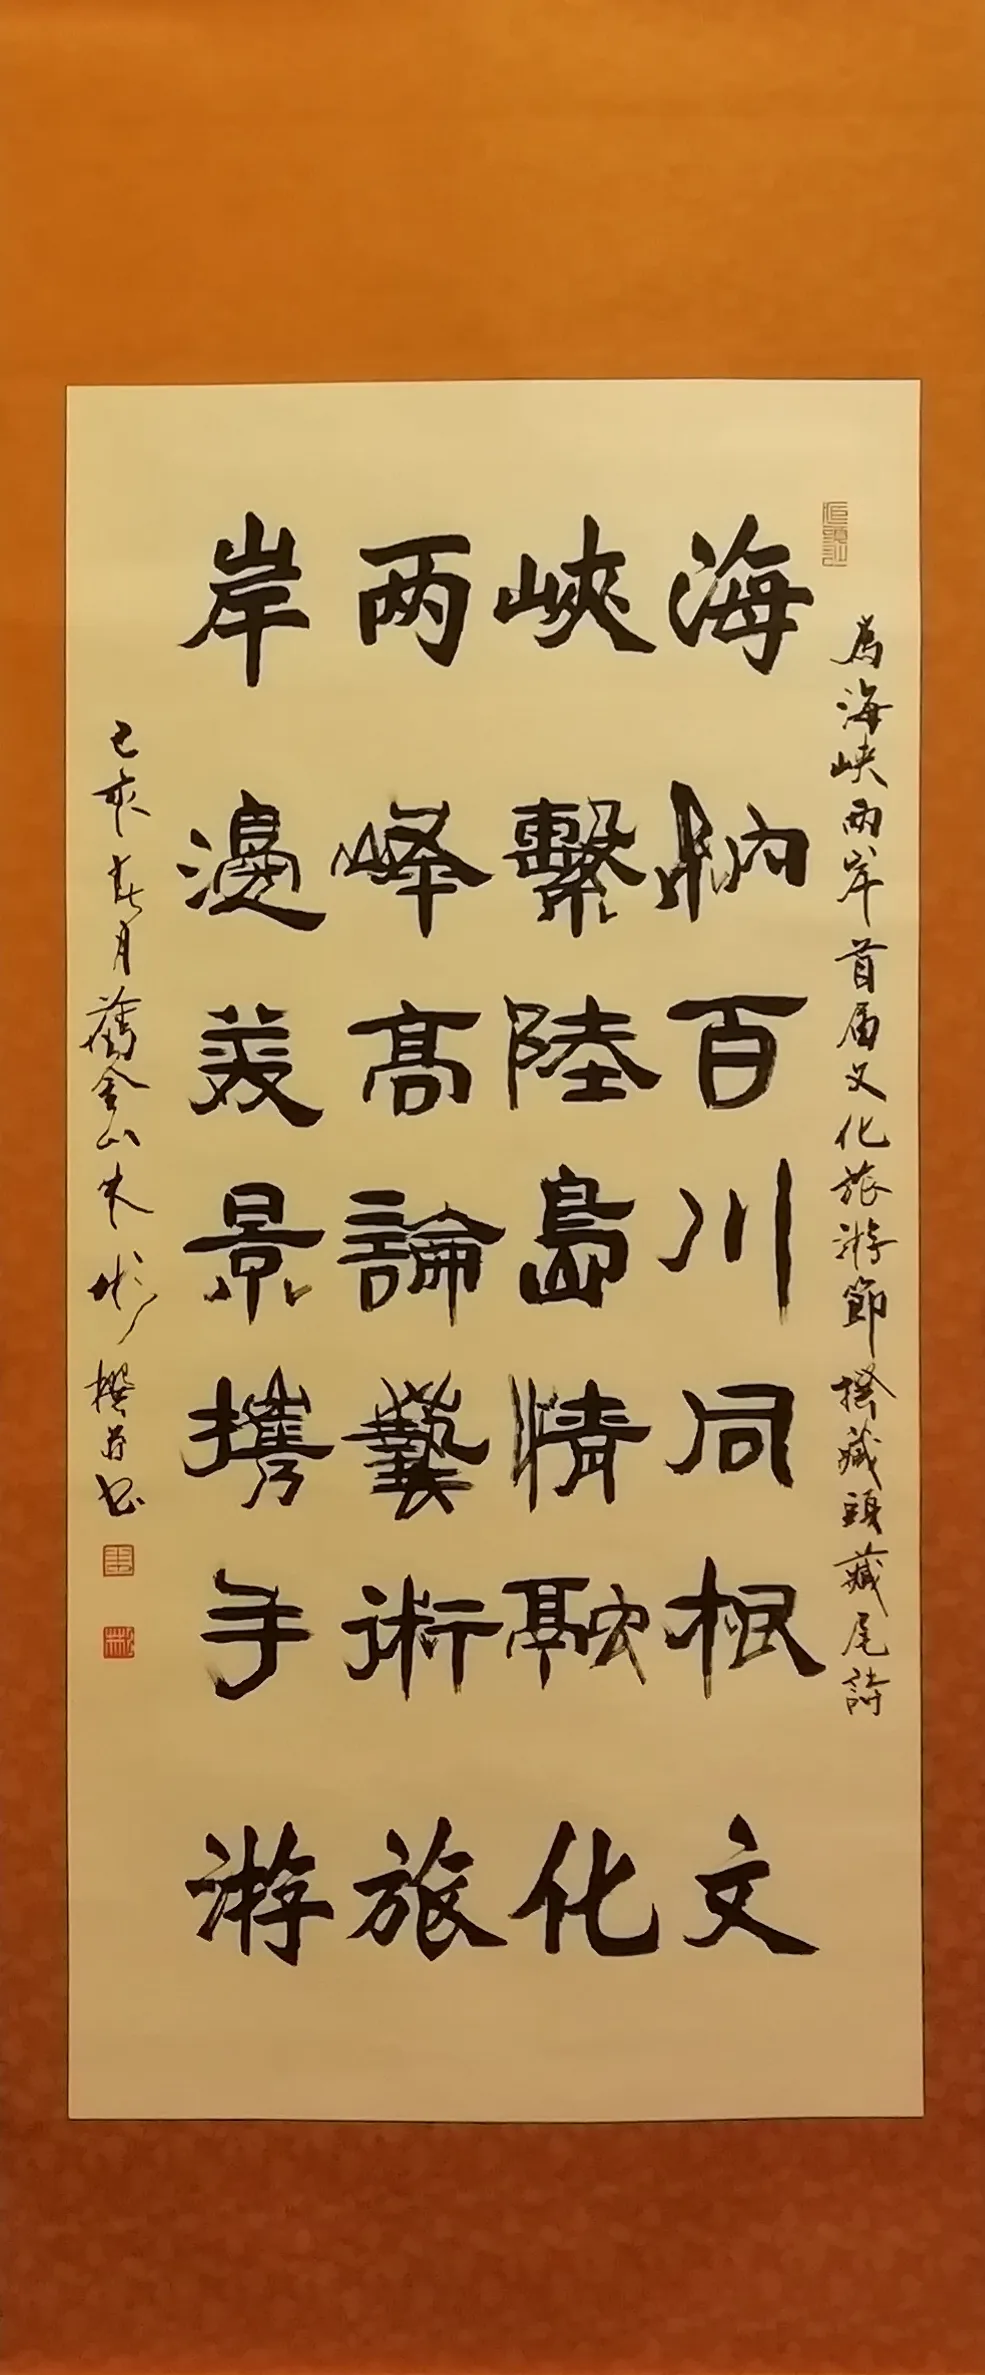 為海峽两岸首届文化旅游節撰藏頭藏尾詩
海納百川同根文
峽繫陸島情融化
两峰高論藝術旅
岸邊美景携手游
己亥春月舊金山朱彬撰并书